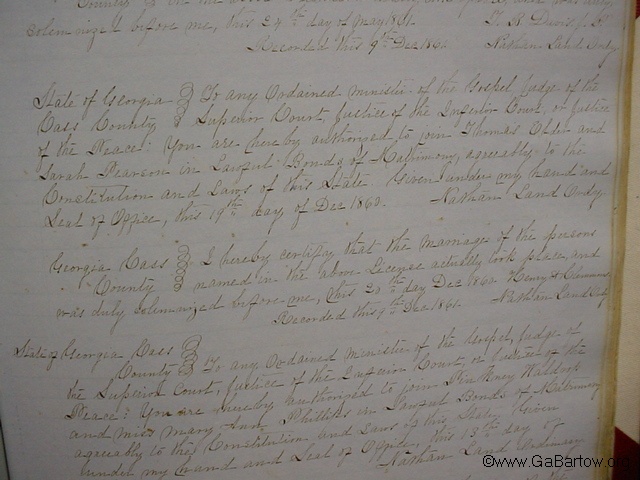 County
solemnized before me, this 24th day of May 1861. T. R. Davis J.P.
Recorded this 9th Dec 1861 Nathan Land Ordy
State of Georgia To any Ordained minister of the Gospel, Judge of the
Cass County Superior Court, Justice of the Inferior Court, or Justice
of the Peace: You are hereby authorized to join Thomas Elder and
Sarah Pearson in Lawful Bonds of Matrimony, agreeably to the
Constitution and Laws of this State. Given under my hand and
Seal of Office, this 19th day of Dec 1860. Nathan Land Ordy
Georgia Cass I hereby certify, that the marriage of the persons
County named in the above License actually took place, and
was duly solemnized before me, this 23rd day Dec 1860 Henry
Recorded this 9th Dec 1861. Nathan Land Ordy
State of Georgia Cass
County To any Ordained Minister of the Gospel, Judge of
the Superior Court, Justice of the Inferior Court, or Justice of the
Peace: You are hereby authorized to join Pinkney Waldrop
and Miss Mary Ann Phillips in Lawful Bonds of Matrimony
agreeably to the Constitution and Laws of this State. Given
under my hand and Seal of Office, this 13th day of
Nathan Land Ordinary
©www.GaBartow.org